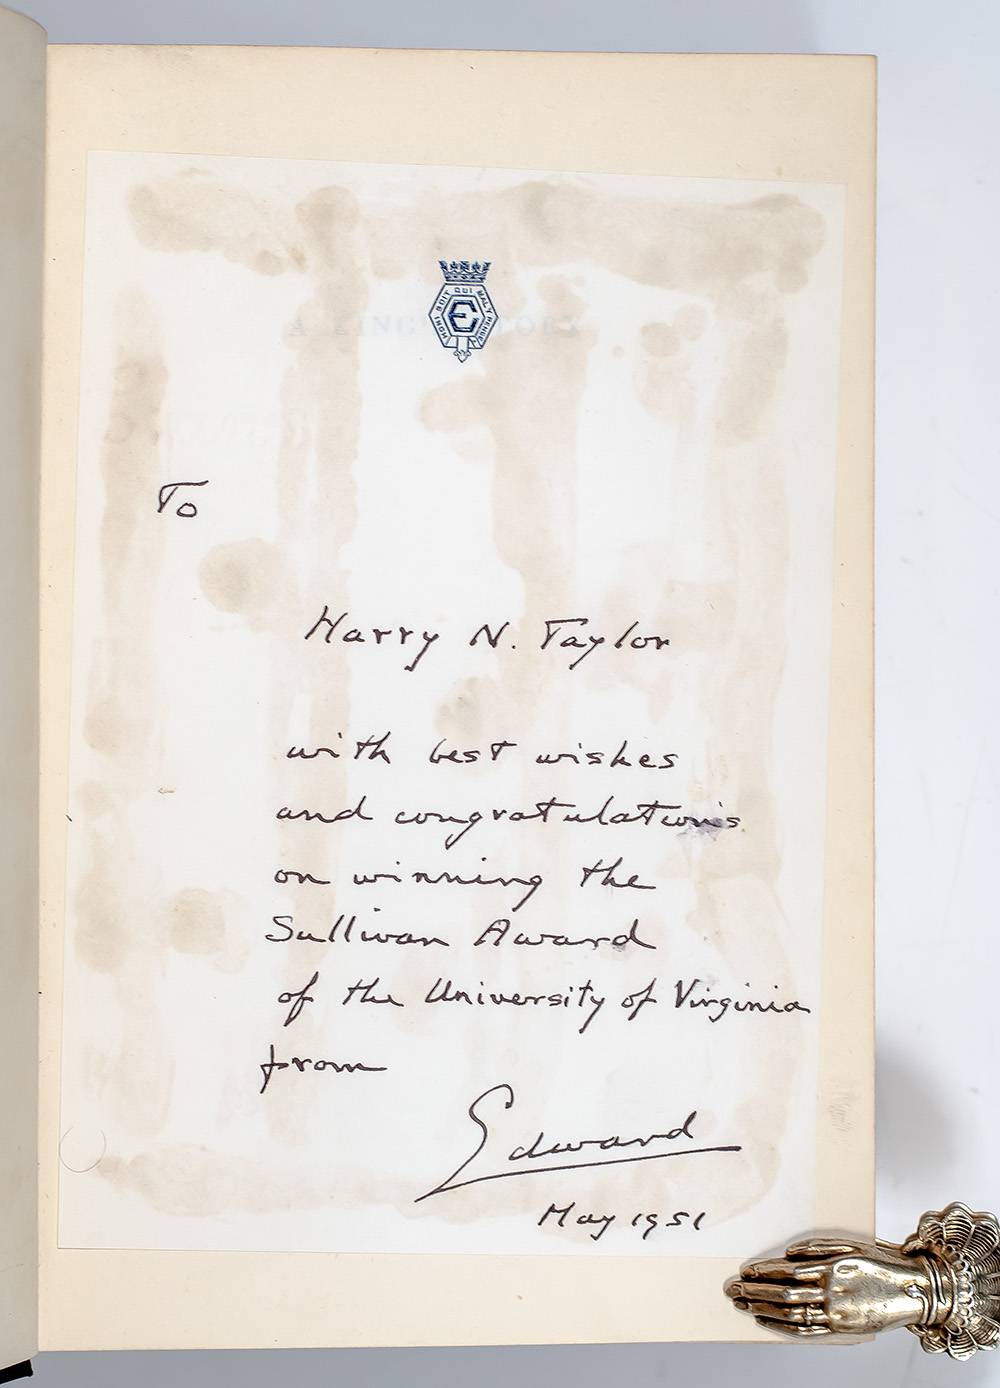 HONI SOIT QUI MAL Y PENSE
E
A KING'S STORY
To
Harry N. Taylor
with best wishes
and congratulations
on winning the
Sullivan Award
of the University of Virginia
from
Edward
May 1951